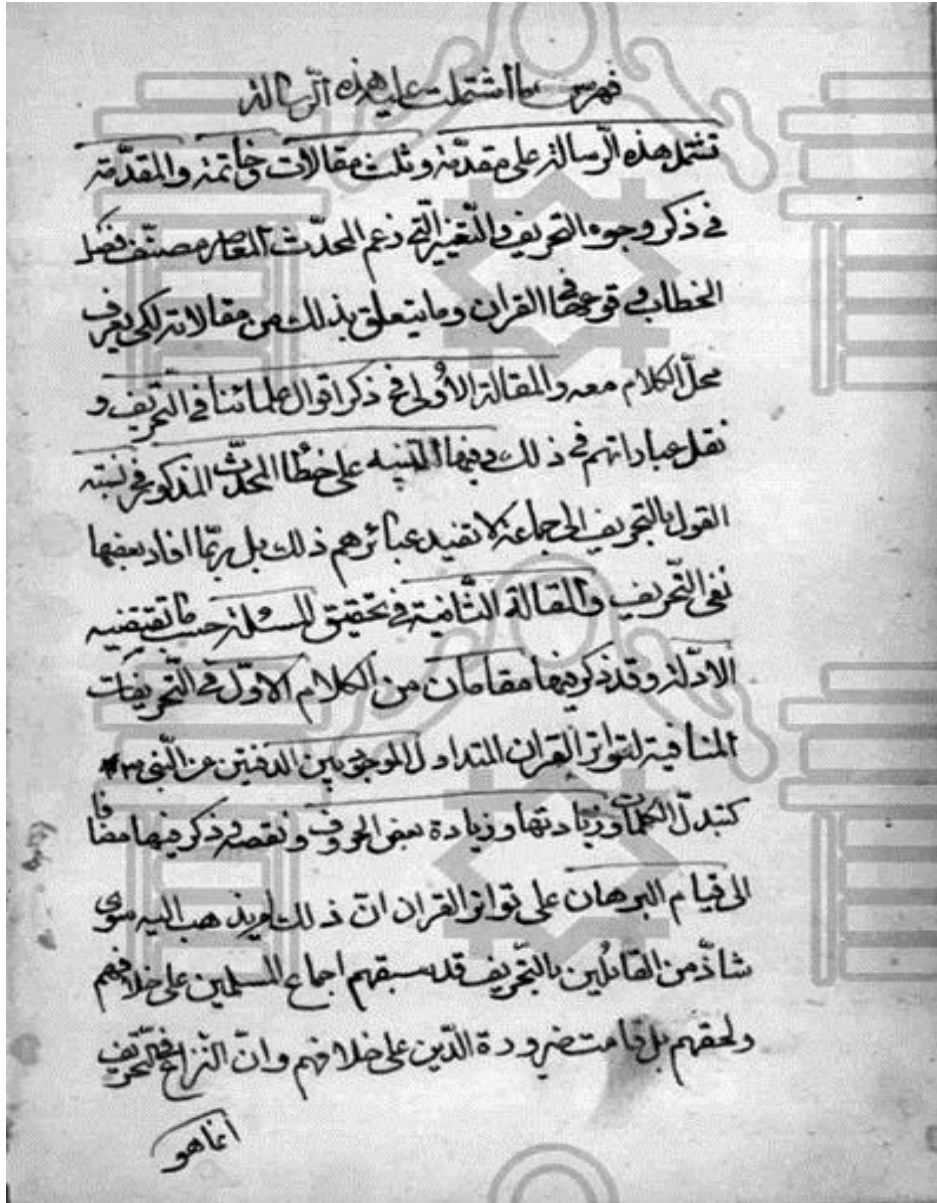 فهرس ما اشتملت عليه هذه الرسالة
تشتمل هذه الرّسالة على مقدّمة وثلث مقالات وخاتمة والمقدّمة
في ذكر وجوه التحريف والتّغيير الّتي زعم المحدّث المعاصر مصنّف فصل
الخطاب وقوعها في القران وما يتعلق بذلك من مقالاته لكي يعرف
محلّ الكلام معه والمقالة الأولى في ذكر اقوال علمائنا في التّحريف و
نقل عباراتهم في ذلك وفيها التنبيه على خطأ المحدّث المذكور في نسبته
القول بالتحريف الى جماعة لا تفيد عبائرهم ذلك بل ربّما افاد بعضها
نفي التّحريف والمقالة الثّانية في تحقيق المسئلة حسب ما تقتضيه
الادلّة وقد ذكر فيها مقامان من الكلام الاوّل في التّحريفات
المنافية لتواتر القران المتداول الموجود بين الدفتين عن النّبي ص
كتبدّل الكلمات وزيادتها وزيادة بعض الحروف ونقصه وذكر فيها مضافا
الى قيام البرهان على تواتر القران انّ ذلك لم يذهب اليه سوى
شاذّ من القائلين بالتّحريف قد سبقهم اجماع المسلمين على خلافهم
ولحقهم بل قامت ضرورة الدّين على خلافهم وانّ النّزاع في التّحريف
انما هو